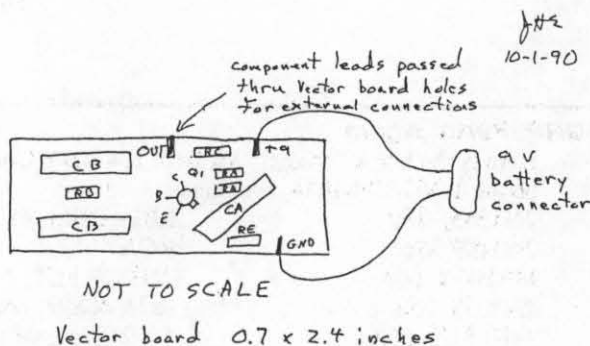 JHE
10-1-90
component leads passed
thru vector board holes
for external connections
OUT
RC
+9
CB
C
Q1
RA
RA
RD
B
CA
E
CB
RE
GND
9V
battery
connector
NOT TO SCALE
Vector board 0.7 x 2.4 inches